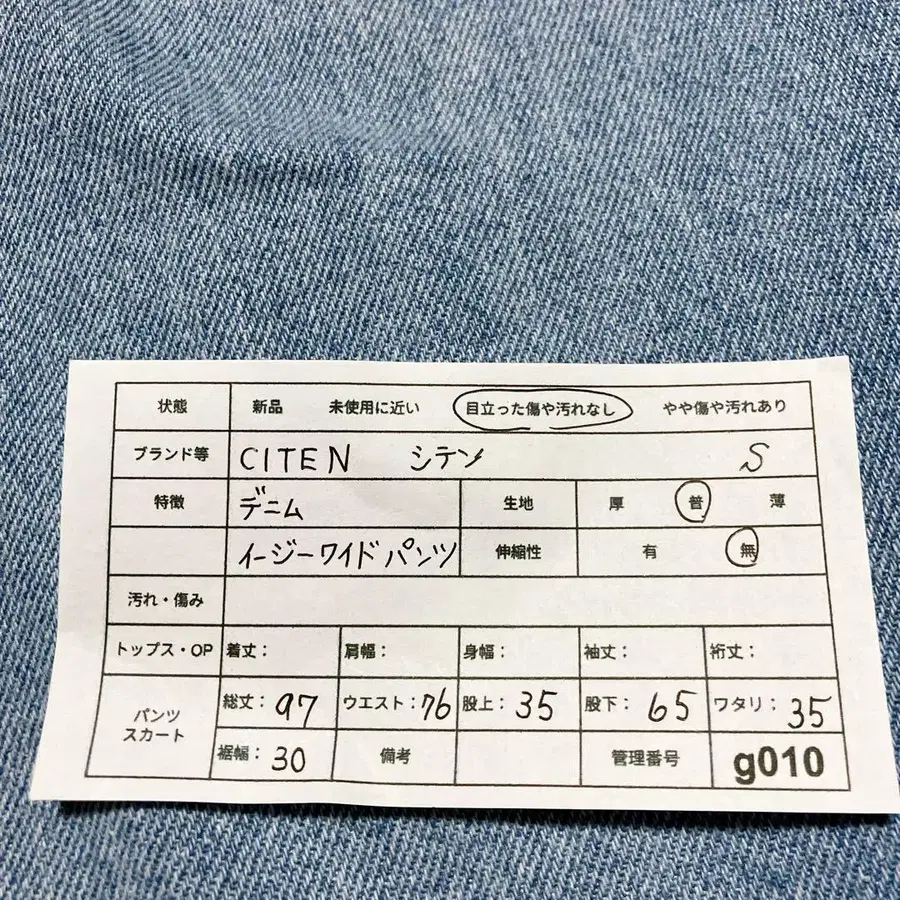 状態 新品 未使用に近い 目立った傷や汚れなし やや傷や汚れあり
ブランド等 CITEN シテン S
特徴 デニム 生地 厚 普 薄
イージーワイドパンツ 伸縮性 有 無
汚れ・傷み
トップス・OP 着丈： 肩幅： 身幅： 袖丈： 裄丈：
パンツ スカート 総丈：97 ウエスト：76 股上：35 股下：65 ワタリ：35
裾幅：30 備考 管理番号 g010